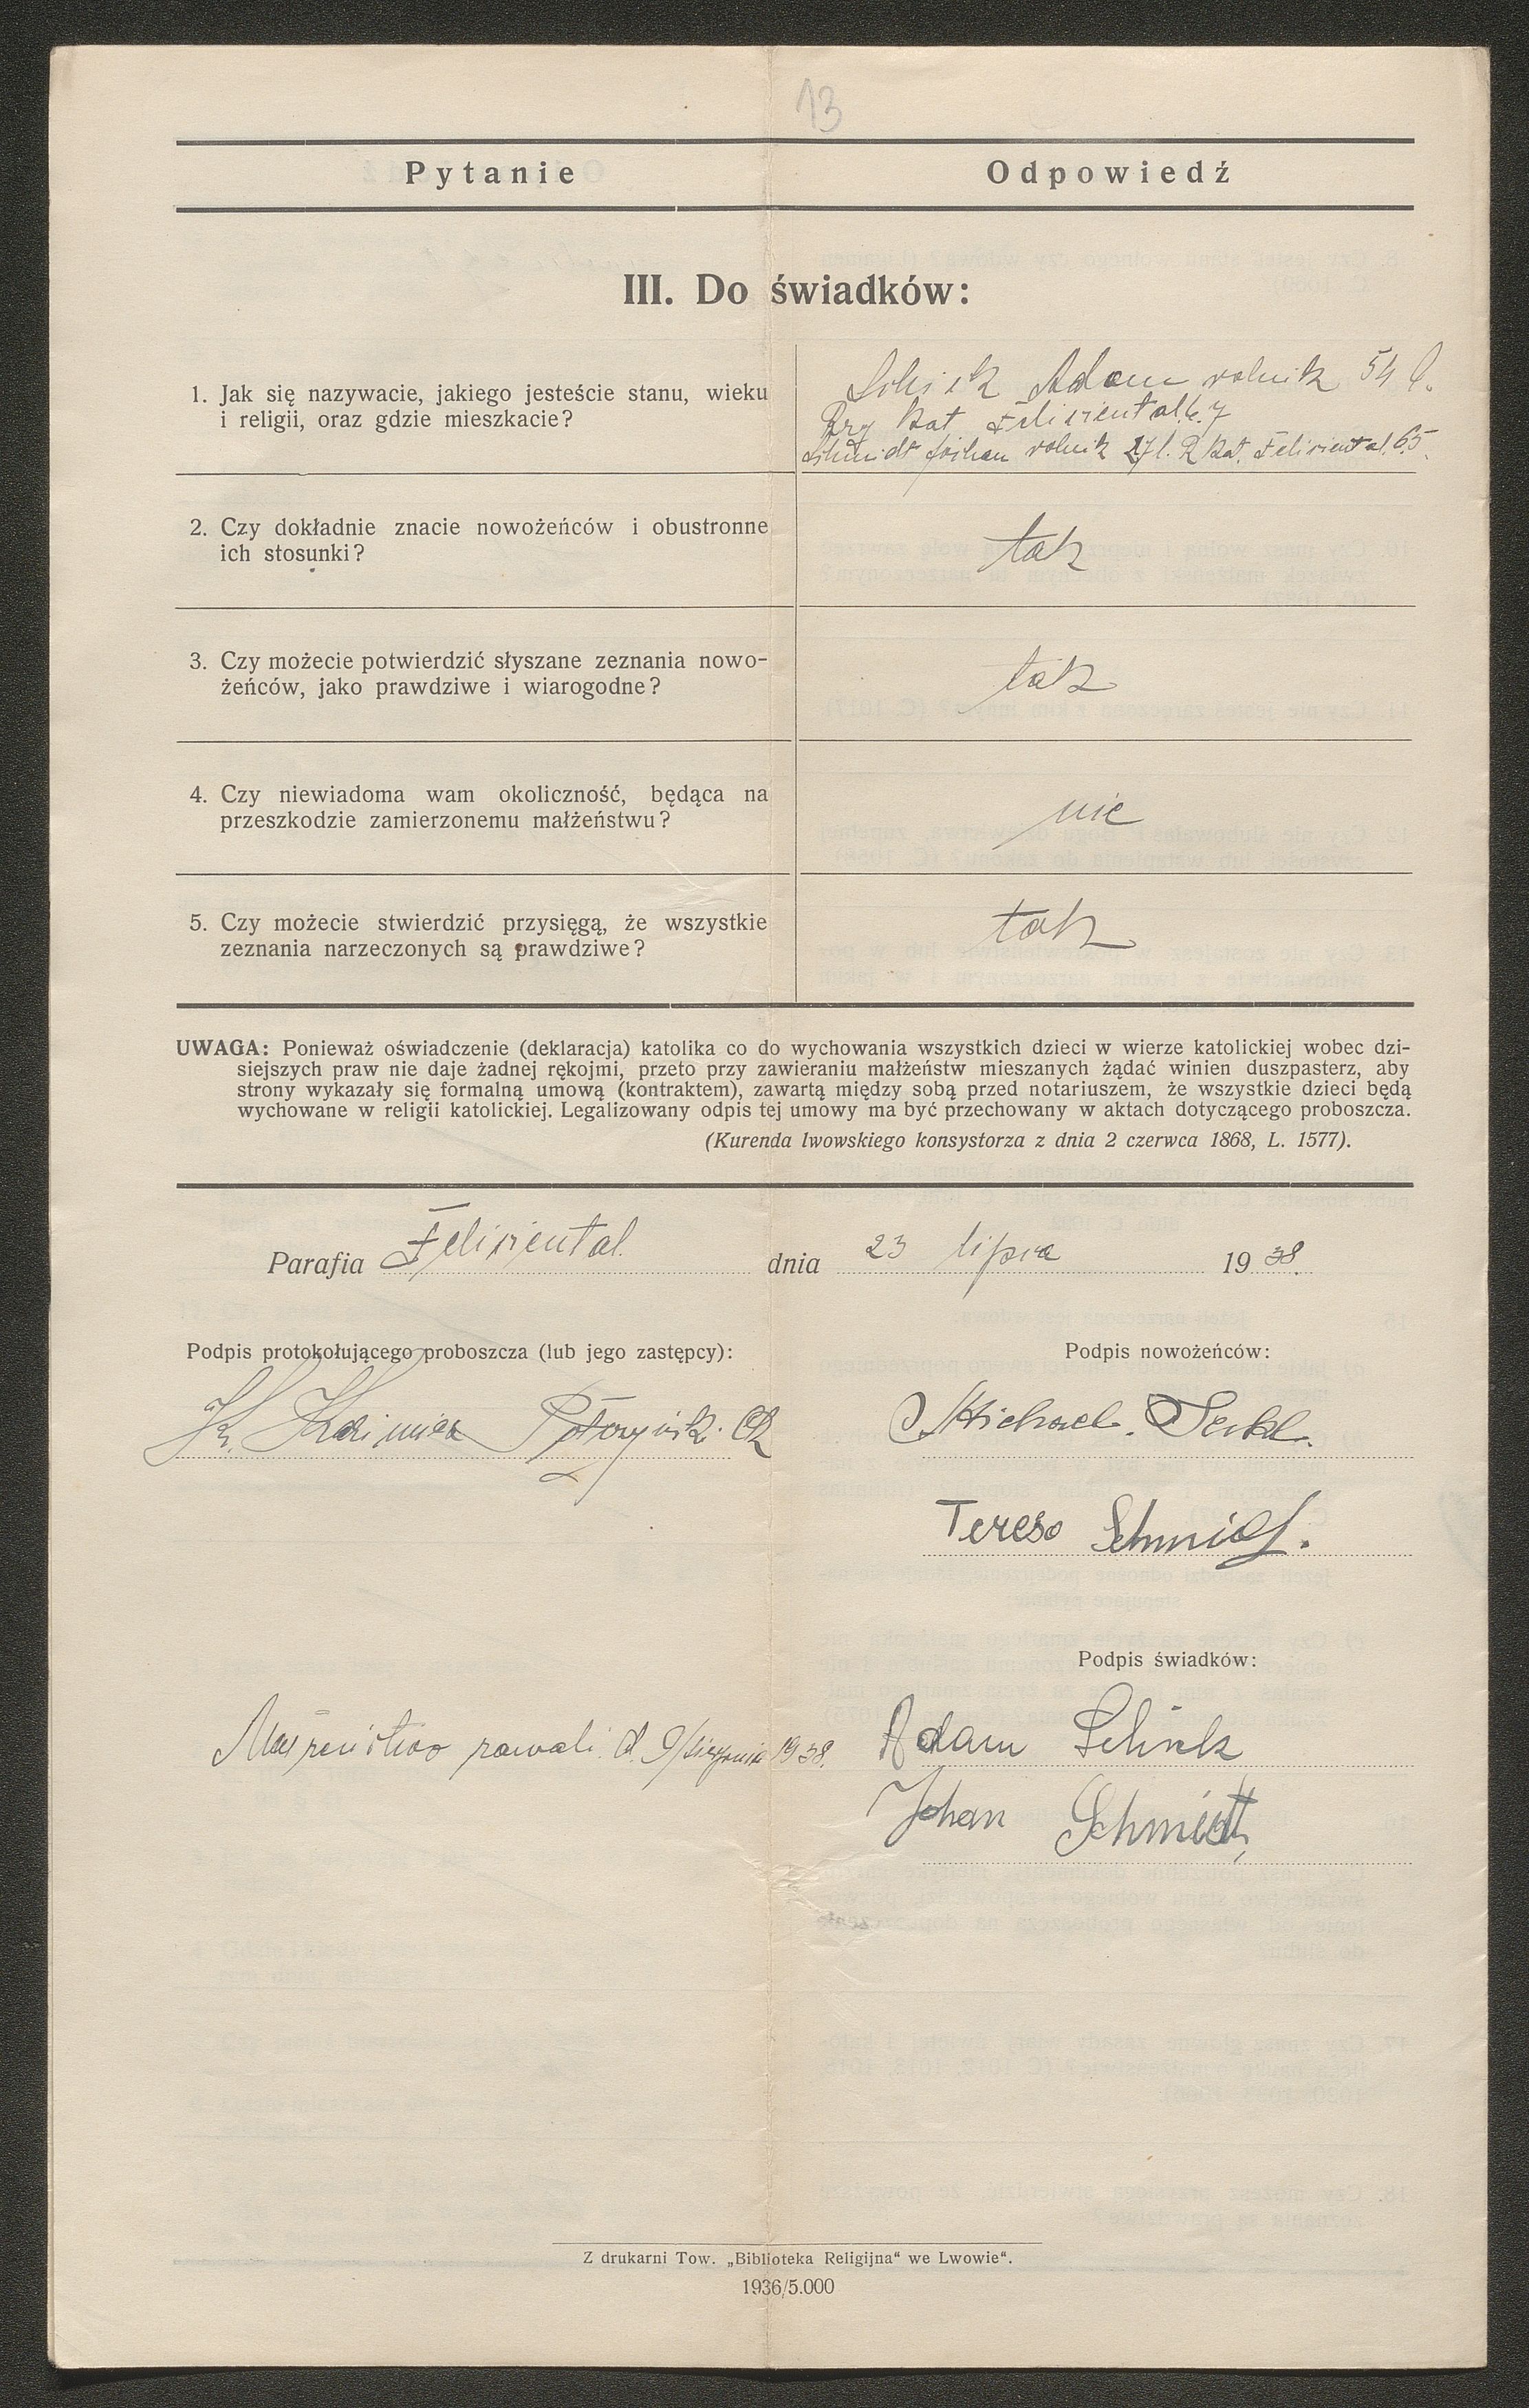 13
Pytanie Odpowiedź
III. Do świadków:
1. Jak się nazywacie, jakiego jesteście stanu, wieku
i religii, oraz gdzie mieszkacie?
Adam rolnik 54 l.
Rzy Kat Feliziental l. 7
Schmidt Johan rolnik 27 l. R Kat. Feliziental. 65.
2. Czy dokładnie znacie nowożeńców i obustronne
ich stosunki?
tak
3. Czy możecie potwierdzić słyszane zeznania nowo-
żeńców, jako prawdziwe i wiarogodne?
tak
4. Czy niewiadoma wam okoliczność, będąca na
przeszkodzie zamierzonemu małżeństwu?
nie
5. Czy możecie stwierdzić przysięgą, że wszystkie
zeznania narzeczonych są prawdziwe?
tak
UWAGA: Ponieważ oświadczenie (deklaracja) katolika co do wychowania wszystkich dzieci w wierze katolickiej wobec dzi-
siejszych praw nie daje żadnej rękojmi, przeto przy zawieraniu małżeństw mieszanych żądać winien duszpasterz, aby
strony wykazały się formalną umową (kontraktem), zawartą między sobą przed notariuszem, że wszystkie dzieci będą
wychowane w religii katolickiej. Legalizowany odpis tej umowy ma być przechowany w aktach dotyczącego proboszcza.
(Kurenda lwowskiego konsystorza z dnia 2 czerwca 1868, L. 1577).
Parafia Feliziental. dnia 23 lipca 1938.
Podpis protokołującego proboszcza (lub jego zastępcy): Podpis nowożeńców:
Ks. Kazimierz
Michael
Tereso Schmidt.
Podpis świadków:
Małżeństwo zawarli d. 9/sierpnia 1938.
Adam
Johan Schmidt
Z drukarni Tow. „Biblioteka Religijna" we Lwowie".
1936/5.000